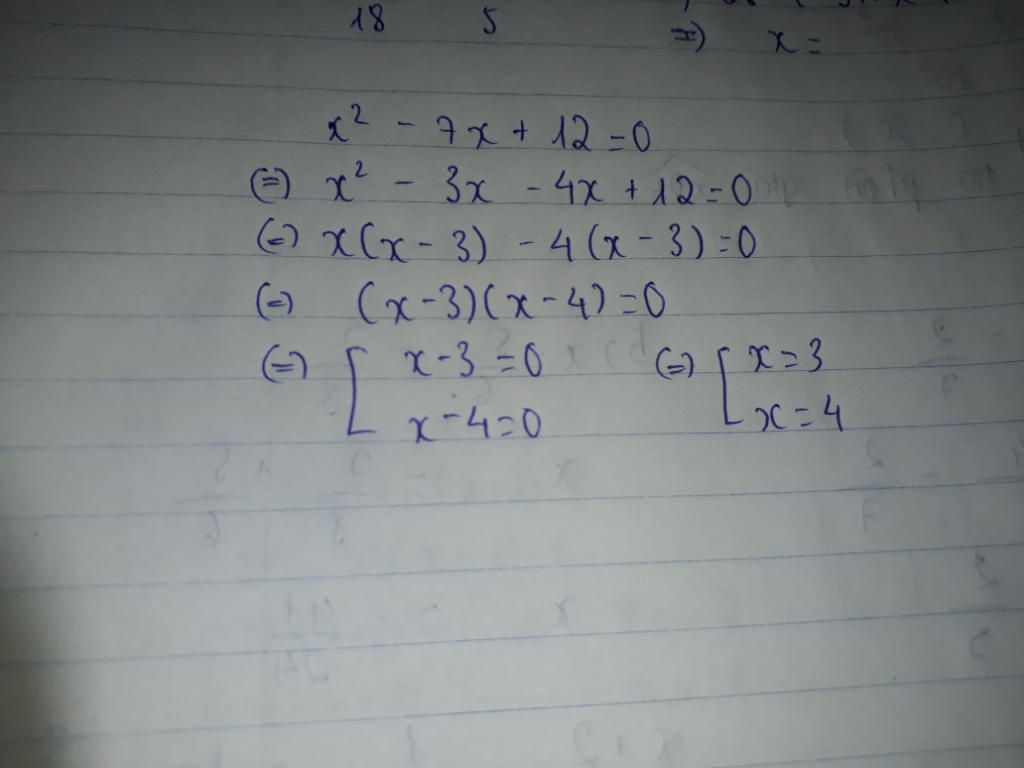 18 5
⇒) x =
x² - 7x + 12 = 0
(=) x² - 3x - 4x + 12 = 0
(=) x(x - 3) - 4(x - 3) = 0
(=) (x - 3)(x - 4) = 0
(=) [ x - 3 = 0 (=) [ x = 3
x - 4 = 0 x = 4